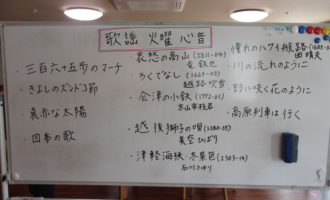 歌謡 火曜 心音
・三百六十五歩のマーチ
・きよしのズンドコ節
・真赤な太陽
・四季の歌
・哀愁の高山 (2811-04)
・ろくでなし (1669-03)
越路吹雪
・会津の小鉄 (1792-01)
京山幸枝若
・越後獅子の唄 (2380-03)
美空ひばり
・津軽海峡・冬景色 (2303-14)
石川さゆり
・憧れのハワイ航路
岡晴夫
・川の流れのように
・野に咲く花のように
・高原列車は行く